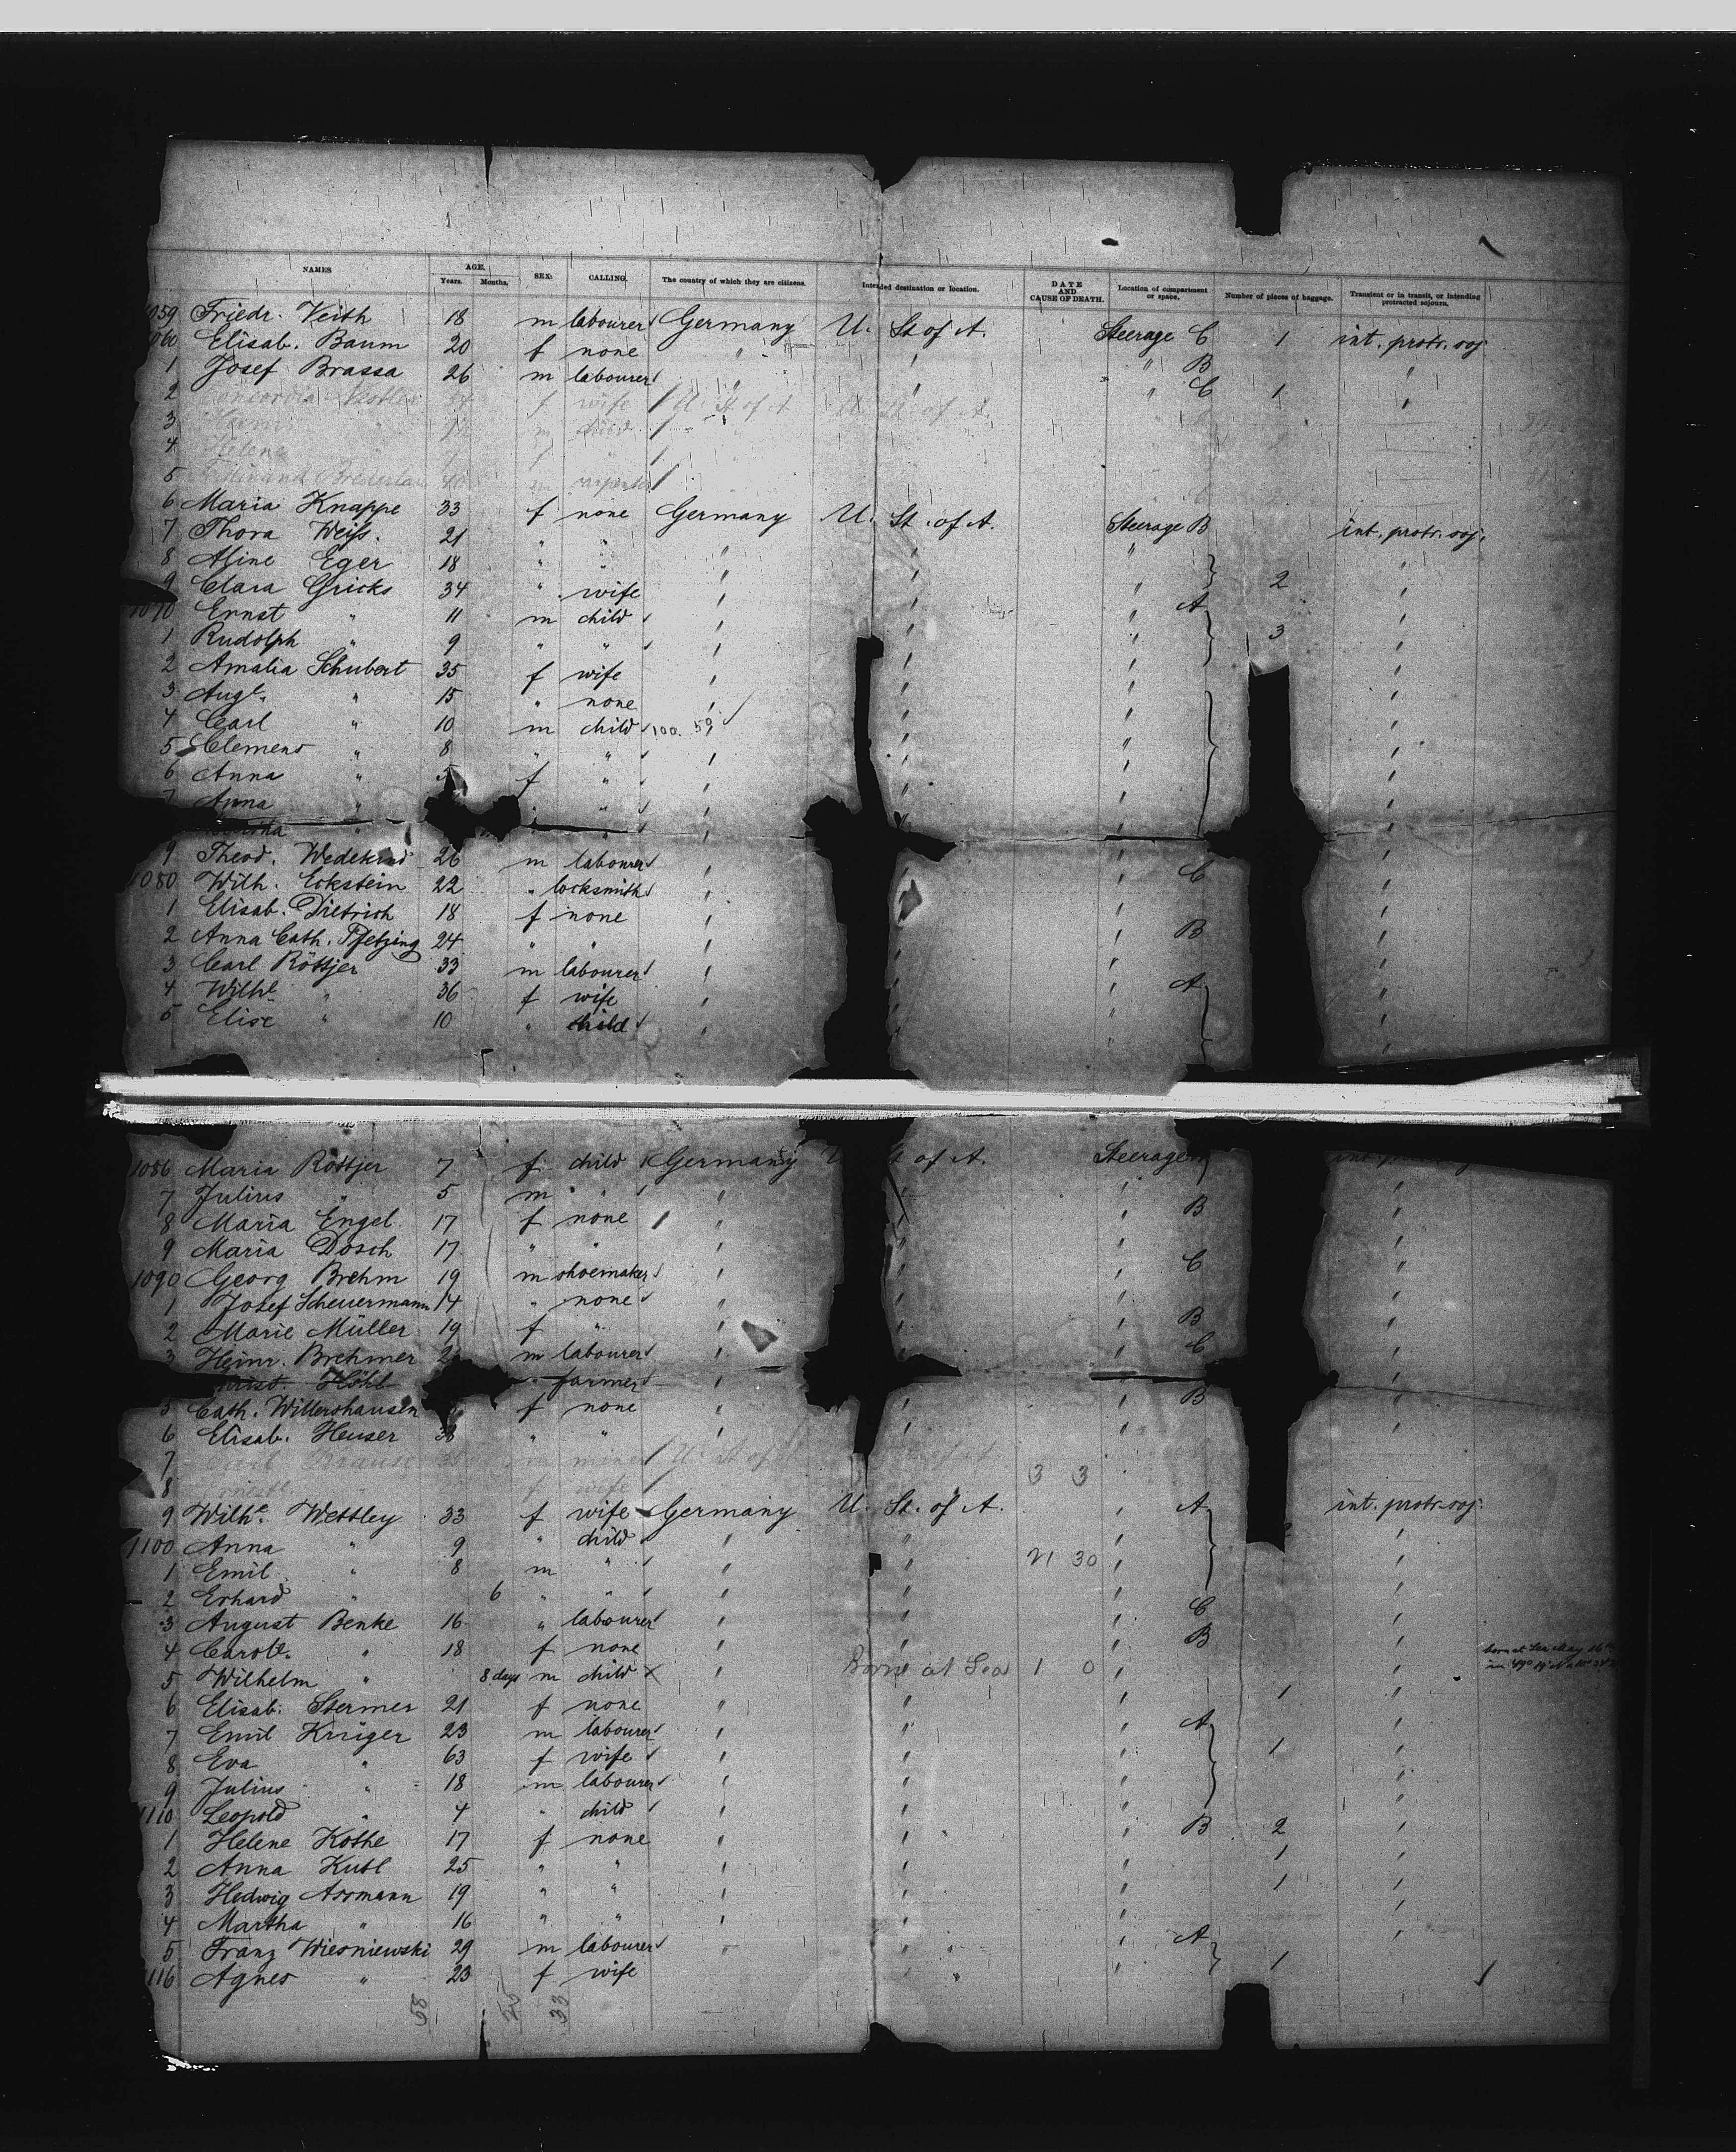 NAMES AGE. Years. Months. SEX: CALLING. The country of which they are citizens. Intended destination or location. DATE AND CAUSE OF DEATH. Location of compartment or space. Number of pieces of baggage. Transient or in transit, or intending protracted sojourn.
1059 Friedr. Veith 18 m labourer Germany U. St of A. Steerage C 1 int. protr. soj
1060 Elisab. Baum 20 f none " " " B "
1 Josef Brassa 26 m labourer " " " C 1 "
2 f wife U. St of A U. St of A.
3 m child
4 Helene f
5 Ferdinand 40 m
6 Maria Knappe 33 f none Germany U. St. of A. Steerage B int. protr. soj.
7 Thora Weiß. 21 " " " " " "
8 Aline Eger 18 " " " " " 2 "
9 Clara Gricks 34 " wife " " " A "
1070 Ernst " 11 m child " " " 3 "
1 Rudolph " 9 " " " " " "
2 Amalia Schubert 35 f wife " " " "
3 Augte. " 15 " none " " " "
4 Carl " 10 m child 100. 59 " " "
5 Clemens " 8 " " " " " "
6 Anna " f " " " " "
7 Anna " " " " " " "
" " "
9 Theod. Wedekind 26 m labourer " " " C "
1080 Wilh. Eckstein 22 " locksmith " " " "
1 Elisab. Dietrich 18 f none " " " B "
2 Anna Cath. Pfetzing 24 " " " " " "
3 Carl Röttjer 33 m labourer " " " A "
4 Wilhe " 36 f wife " " " "
5 Elise " 10 " child " " " "
1086 Maria Röttjer 7 f child Germany St of A. Steerage
7 Julius " 5 m " " " " "
8 Maria Engel 17 f none " " " B "
9 Maria Dosch 17 " " " " " "
1090 Georg Brehm 19 m shoemaker " " " C "
1 Josef Scheuermann 14 " none " " " "
2 Marie Müller 19 f " " " " B "
3 Heinr. Brehmer m labourer " " " C "
Höhl " farmer " "
5 Cath. Willershausen f none " " " B "
6 Elisab. Heuser 38 " " " " " "
7 Krause m miner U. St of A
8 f wife 3 3
9 Wilhe. Wettley 33 f wife Germany U. St. of A. " A int. protr. soj.
1100 Anna " 9 " child " " " "
1 Emil " 8 m " " " 21 30 " "
2 Erhard " 6 " " " " " "
3 August Benke 16 " labourer " " " C "
4 Carole. " 18 f none " " " B " born at Sea May 16th
5 Wilhelm " 8 days m child " Born at Sea 1 0 "
6 Elisab. Stermer 21 f none " " " 1 "
7 Emil Krüger 23 m labourer " " " A "
8 Eva " 63 f wife " " " 1 "
9 Julius " 18 m labourer " " " "
1110 Leopold " 4 " child " " " "
1 Helene Kothe 17 f none " " " B 2 "
2 Anna Kutl 25 " " " " " 1 "
3 Hedwig Assmann 19 " " " " 1 "
4 Martha " 16 " " " " " "
5 Franz Wiesniewski 29 m labourer " " " A "
1116 Agnes " 23 f wife " " 1
58 25 33